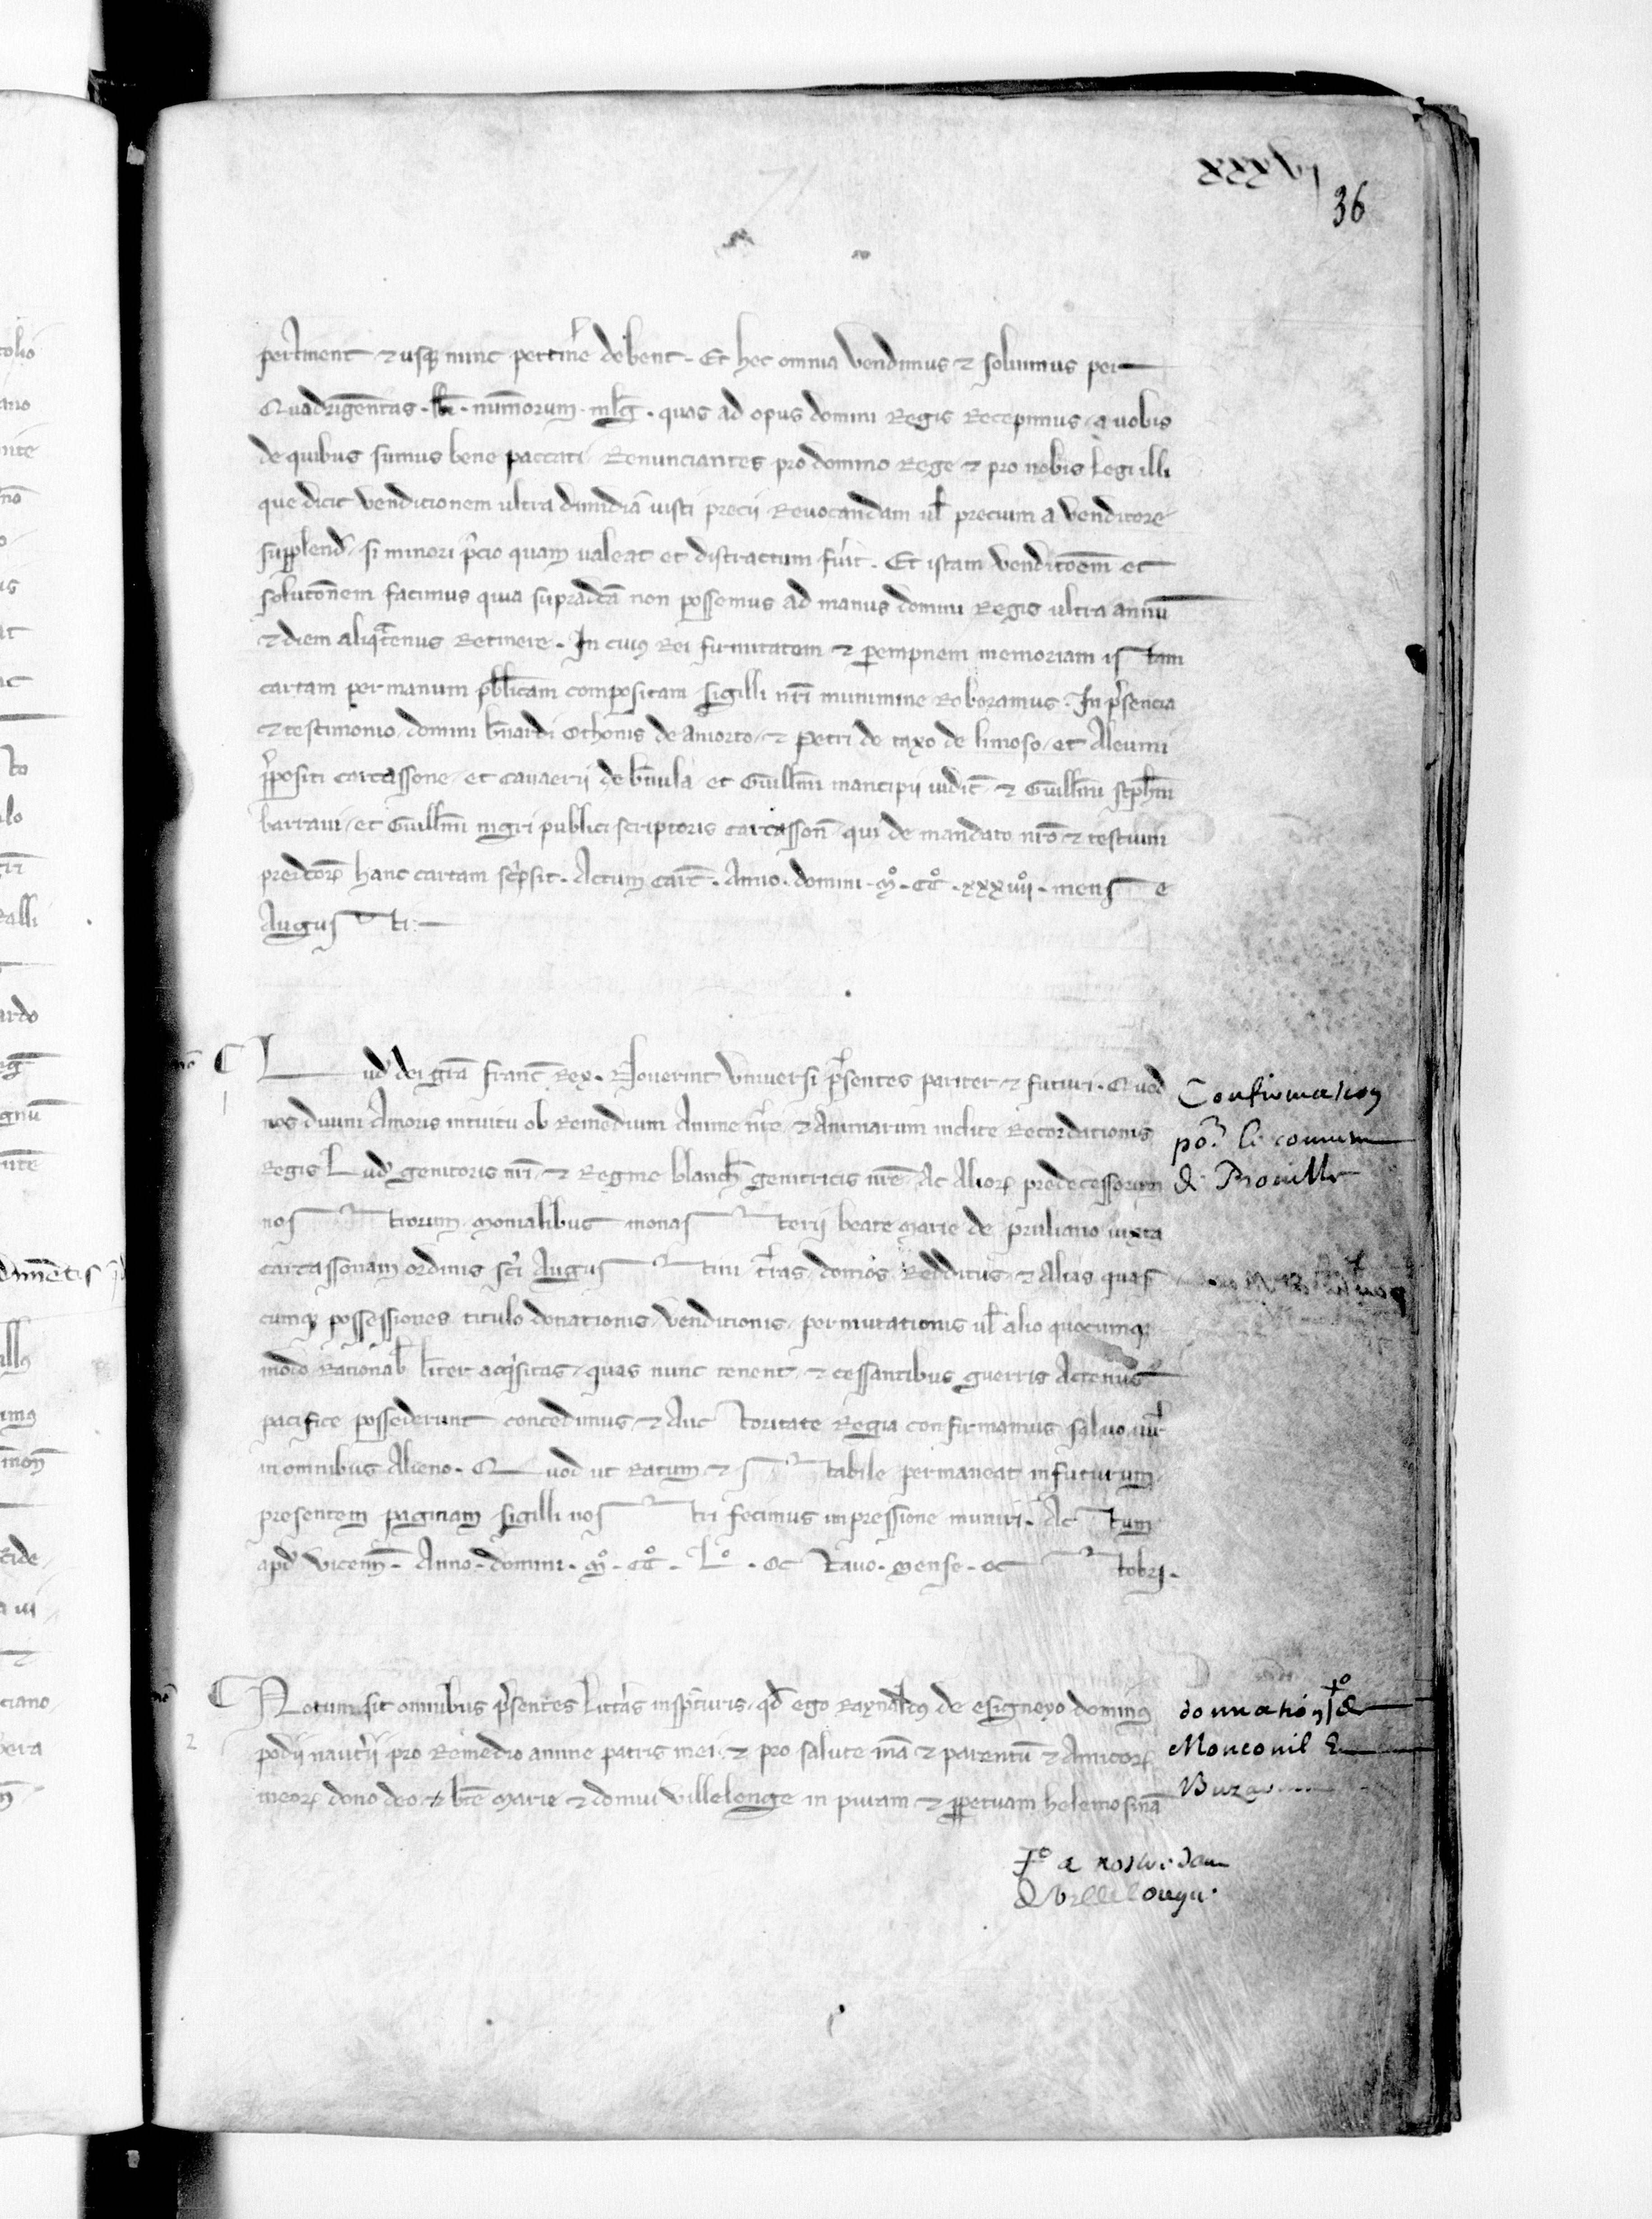 36
pertinent ⁊ usq̨ nunc pertin̄e debent. Et hec omnia vendimus ⁊ soluimus per
Quadrigentas. ł. nummorum. mlḡ. quas ad opus domini Regis Recepimus a vobis
de quibus sumus bene paccati. Renunciantes pro domino Rege ⁊ pro nobis legi illi
que dicit venditionem ultra dimidiā iusti precii Revocandam ul̄ precium a venditore
supplend̄. si minori p̄cio quam valeat et distractum fu̓it. Et istam venditōem et
solutōnem facimus quia supradc̄ā non possemus ad manus domini Regis ultra annū
⁊ diem aliq̄tenus Retinere. In cuiꝰ Rei firmitatem ⁊ perempnem memoriam istam
cartam per manum pb̄licam compositam sigilli nr̄i munimine Roboramus. In p̄sencia
⁊ testimonio domini b̄nardi Othonis de aniorto. ⁊ petri de taxo de limoso. et Aleumi
p̄positi carcassone. et cavaerii de  et Guill̄mi mancipii iudic̄. ⁊ Guill̄mi stepħni
barravi. et Guill̄mi nigri publici scriptoris carcasson̄. qui de mandato nr̄o ⁊ testium
predc̄orꝝ hanc cartam sc̄psit. Actum Carc̄. Anno. domini. M̊. CC̊. xxxiiij̊. mense
Augusti.
Lud̄ dei gr̄a franc̄ Rex. Noverint universi p̄sentes pariter ⁊ futuri. Quod
nos divini Amoris intuitu ob Remedium Anime nr̄e ⁊ Animarum inclite Recordationis
Regis Lud̄ genitoris nr̄i. ⁊ Regine blancħ genitricis nr̄e Ac Aliorꝝ predecessorum
nostrorum. monialibus monasterii beate marie de pruliano iuxta
carcassonam ordinis sc̄i Augustini t̄ras domos Redditus ⁊ Alias quas
cumq̨ possessiones titulo donationis venditionis permutationis ul̄ alio quocumq̨
modo Rationabl̄iter acq̄sitas. quas nunc tenent. ⁊ cessantibus guerris Actenus
pacifice possederunt concedimus. ⁊ Auctoritate Regia confirmamus salvo iur̄
in omnibus Alieno. Quod ut Ratum ⁊ stabile permaneat in futurum.
presentem paginam sigilli nostri fecimus impressione muniri. Actum
apd̄ vicenn̄. Anno. domini. M̊. CC̊. L̊. octavo. mense. octobrj.
Confirmation
po. le couvent
de Prouille
Notum sit omnibus p̄sentes litt̄as insp̄cturis. qd̄ ego Raynaldꝰ de esigneyo dominꝰ
podij nauc̄ij pro Remedio anime patris mei ⁊ pro salute mā ⁊ parentū ⁊ Amicorꝝ
meorꝝ dono deo ⁊ bt̄e marie ⁊ domui villelonge in puram ⁊ ꝑpetuam helemosinā
2
donnation de
Monconil &
F̊ a nostre dam
de villelongu.